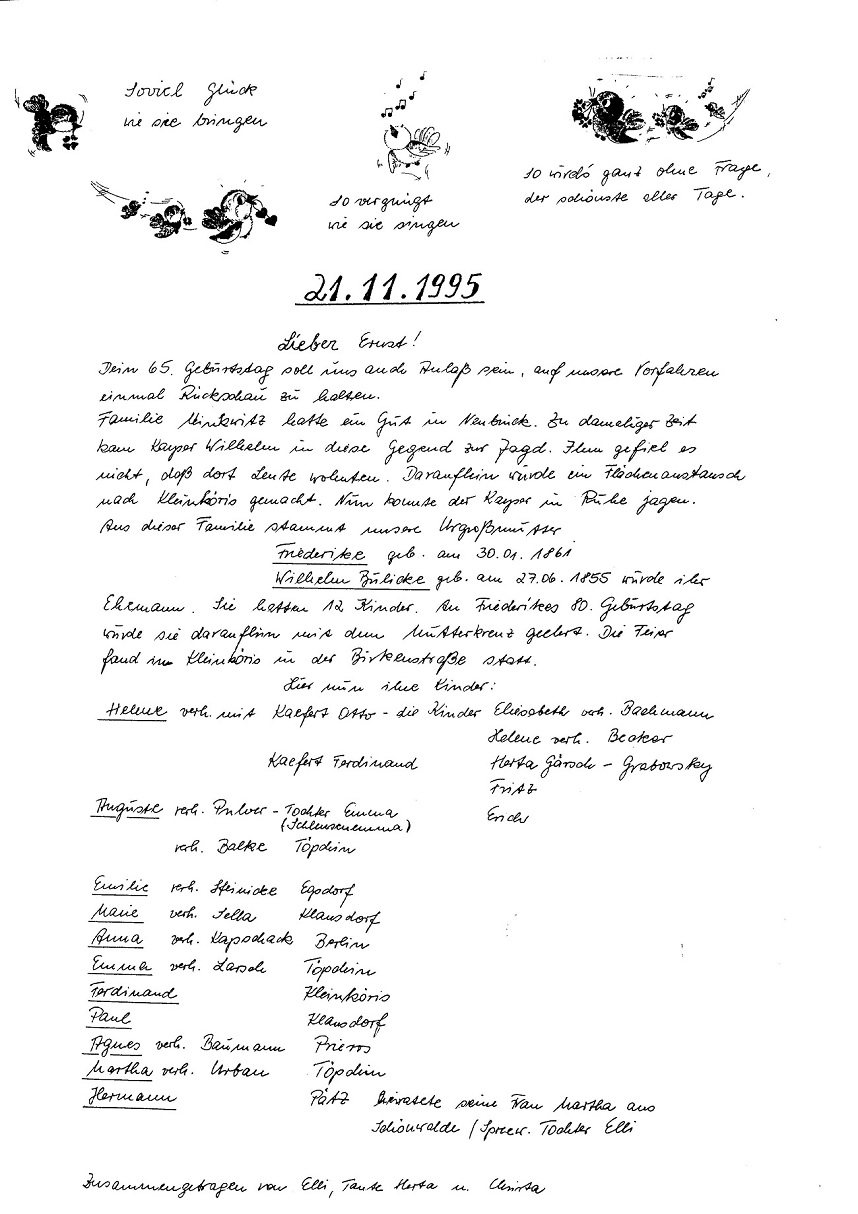 Soviel Glück
wie sie bringen
so vergnügt
wie sie singen
so wird's ganz ohne Frage,
der schönste aller Tage.
21.11.1995
Lieber Ernst!
Dein 65. Geburtstag soll uns auch Anlaß sein, auf unsere Vorfahren
einmal Rückschau zu halten.
Familie Minkwitz hatte ein Gut in Neubrück. Zu damaliger Zeit
kam Kayser Wilhelm in diese Gegend zur Jagd. Ihm gefiel es
nicht, daß dort Leute wohnten. Daraufhin wurde ein Flächenaustausch
nach Kleinköris gemacht. Nun konnte der Kayser in Ruhe jagen.
Aus dieser Familie stammt unsere Urgroßmutter
Friederike geb. am 30.01.1861
Wilhelm Bülicke geb. am 27.06.1855 wurde ihr
Ehemann. Sie hatten 12 Kinder. An Friederikes 80. Geburtstag
wurde sie daraufhin mit dem Mutterkreuz geehrt. Die Feier
fand in Kleinköris in der Birkenstraße statt.
Hier nun ihre Kinder:
Helene verh. mit Kaefert Otto - die Kinder Eliesabeth verh. Bachmann
Helene verh. Becker
Kaefert Ferdinand Herta Gärsch - Grabowsky
Fritz
Auguste verh. Pulver - Tochter Emma Erich
(Schleusenemma)
verh. Balke Töpchin
Emilie verh. Steinicke Egsdorf
Marie verh. Sella Klausdorf
Anna verh. Kapschack Berlin
Emma verh. Larsch Töpchin
Ferdinand Kleinköris
Paul Klausdorf
Agnes verh. Baumann Prieros
Martha verh. Urban Töpchin
Hermann Pätz heiratete seine Frau Martha aus
Schönwalde / Spreew. Tochter Elli
Zusammengetragen von Elli, Tante Herta u. Christa